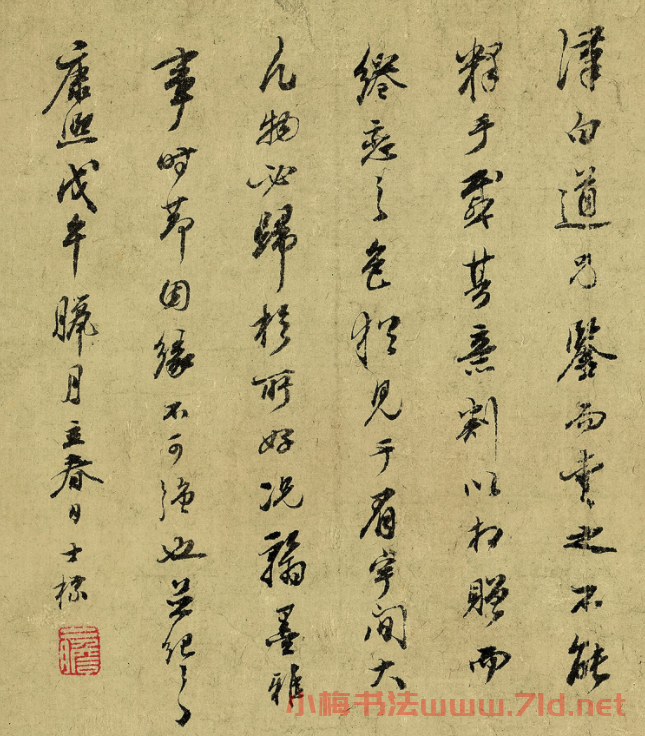 漢白道兄鑒而愛之不能
釋手其意割以相贈而
綣戀之色猶見于眉宇間大
凡物必歸於所好況翰墨雅
事時節因緣不可強也並紀之
康熙戊午臘月立春日士標
小梅书法www.7ld.net